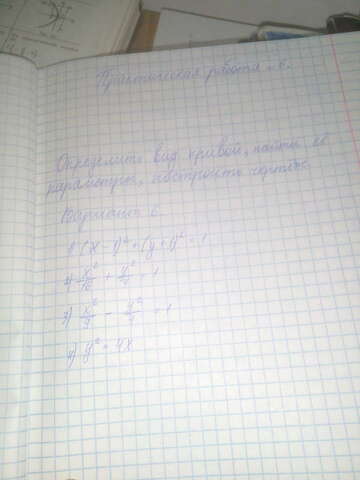 Практическая работа № 6.
Определить вид кривой, найти её
параметры, построить чертёж.
Вариант 6.
1) (x - 1)² + (y + 1)² = 1
2) x²/16 + y²/4 = 1
3) x²/9 - y²/4 = 1
4) y² = 4x